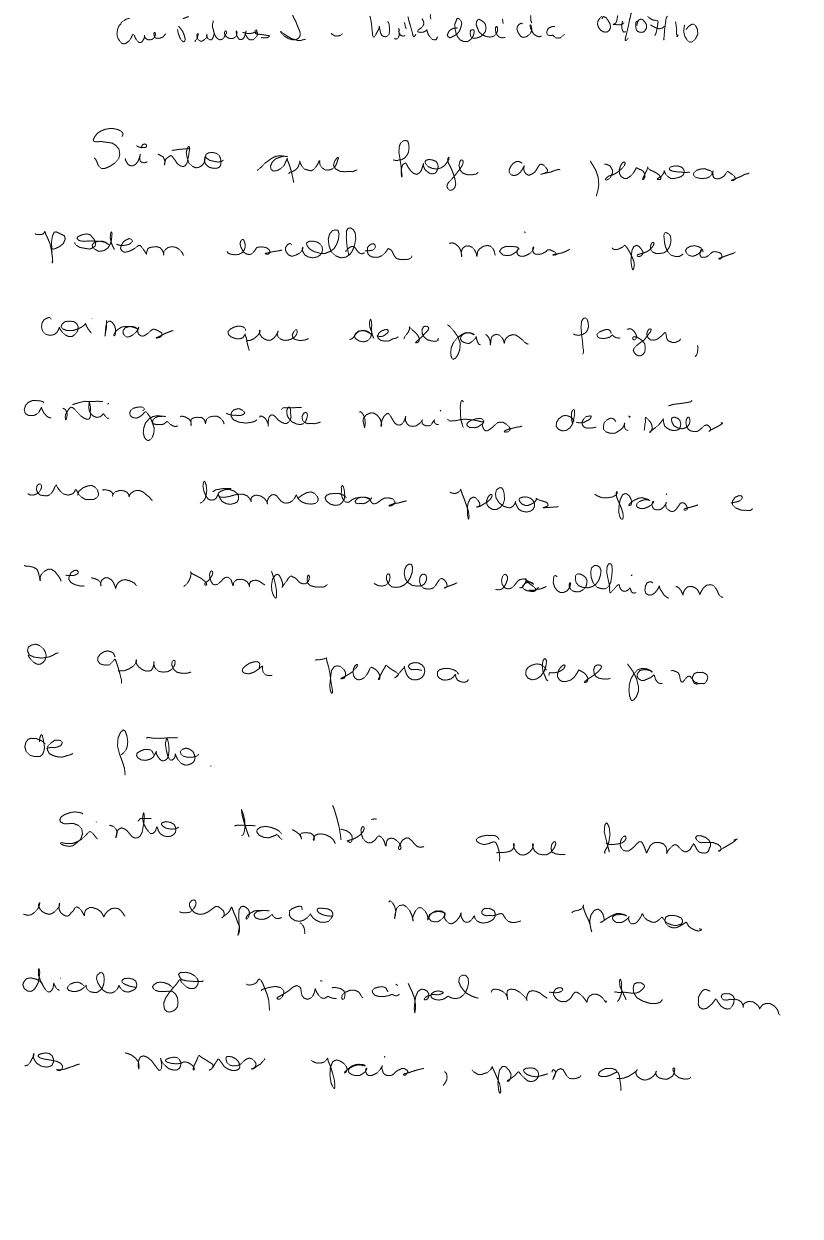 Wikidelícia 04/07/10
Sinto que hoje as pessoas
podem escolher mais pelas
coisas que desejam fazer,
antigamente muitas decisões
eram tomadas pelos pais e
nem sempre eles escolhiam
o que a pessoa desejava
de fato.
Sinto também que temos
um espaço maior para
dialogo principalmente com
os nossos pais, porque